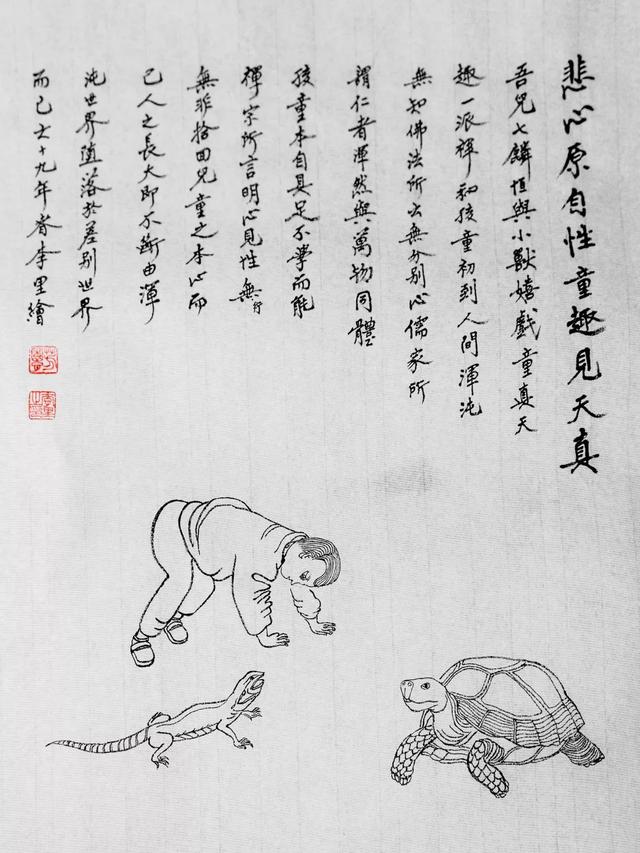 悲心原自性童趣見天真
吾兒七麟恒與小獸嬉戲童真天
趣一派禪和孩童初到人間渾沌
無知佛法所云無分別心儒家所
謂仁者渾然與萬物同體
孩童本自具足不學而能
禪宗所言明心見性無行
無非拾回兒童之本心而
已人之長大即不斷由渾
沌世界墮落於差別世界
而已 十九年春李里繪